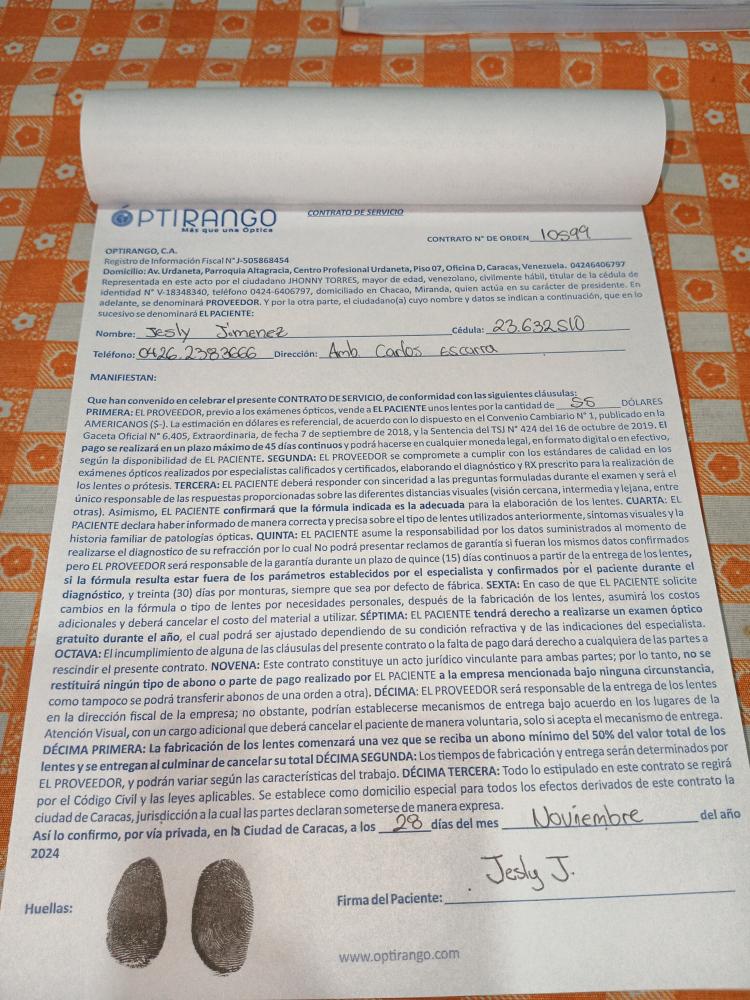 ÓPTIRANGO
Más que una Óptica
CONTRATO DE SERVICIO
CONTRATO N° DE ORDEN 10599
OPTIRANGO, C.A.
Registro de Información Fiscal N° J-505868454
Domicilio: Av. Urdaneta, Parroquia Altagracia, Centro Profesional Urdaneta, Piso 07, Oficina D, Caracas, Venezuela. 04246406797
Representada en este acto por el ciudadano JHONNY TORRES, mayor de edad, venezolano, civilmente hábil, titular de la cédula de
identidad N° V-18348340, teléfono 0424-6406797, domiciliado en Chacao, Miranda, quien actúa en su carácter de presidente. En
adelante, se denominará PROVEEDOR. Y por la otra parte, el ciudadano(a) cuyo nombre y datos se indican a continuación, que en lo
sucesivo se denominará EL PACIENTE:
Nombre: Jesly Jimenez Cédula: 23.632.510
Teléfono: 0426.2383666 Dirección: Amb. Carlos Escarra
MANIFIESTAN:
Que han convenido en celebrar el presente CONTRATO DE SERVICIO, de conformidad con las siguientes cláusulas:
PRIMERA: EL PROVEEDOR, previo a los exámenes ópticos, vende a EL PACIENTE unos lentes por la cantidad de 55 DÓLARES
AMERICANOS ($-). La estimación en dólares es referencial, de acuerdo con lo dispuesto en el Convenio Cambiario N° 1, publicado en la
Gaceta Oficial N° 6.405, Extraordinaria, de fecha 7 de septiembre de 2018, y la Sentencia del TSJ N° 424 del 16 de octubre de 2019. El
pago se realizará en un plazo máximo de 45 días continuos y podrá hacerse en cualquier moneda legal, en formato digital o en efectivo,
según la disponibilidad de EL PACIENTE. SEGUNDA: EL PROVEEDOR se compromete a cumplir con los estándares de calidad en los
exámenes ópticos realizados por especialistas calificados y certificados, elaborando el diagnóstico y RX prescrito para la realización de
los lentes o prótesis. TERCERA: EL PACIENTE deberá responder con sinceridad a las preguntas formuladas durante el examen y será el
único responsable de las respuestas proporcionadas sobre las diferentes distancias visuales (visión cercana, intermedia y lejana, entre
otras). Asimismo, EL PACIENTE confirmará que la fórmula indicada es la adecuada para la elaboración de los lentes. CUARTA: EL
PACIENTE declara haber informado de manera correcta y precisa sobre el tipo de lentes utilizados anteriormente, síntomas visuales y la
historia familiar de patologías ópticas. QUINTA: EL PACIENTE asume la responsabilidad por los datos suministrados al momento de
realizarse el diagnostico de su refracción por lo cual No podrá presentar reclamos de garantía si fueran los mismos datos confirmados
pero EL PROVEEDOR será responsable de la garantía durante un plazo de quince (15) días continuos a partir de la entrega de los lentes,
si la fórmula resulta estar fuera de los parámetros establecidos por el especialista y confirmados por el paciente durante el
diagnóstico, y treinta (30) días por monturas, siempre que sea por defecto de fábrica. SEXTA: En caso de que EL PACIENTE solicite
cambios en la fórmula o tipo de lentes por necesidades personales, después de la fabricación de los lentes, asumirá los costos
adicionales y deberá cancelar el costo del material a utilizar. SÉPTIMA: EL PACIENTE tendrá derecho a realizarse un examen óptico
gratuito durante el año, el cual podrá ser ajustado dependiendo de su condición refractiva y de las indicaciones del especialista.
OCTAVA: El incumplimiento de alguna de las cláusulas del presente contrato o la falta de pago dará derecho a cualquiera de las partes a
rescindir el presente contrato. NOVENA: Este contrato constituye un acto jurídico vinculante para ambas partes; por lo tanto, no se
restituirá ningún tipo de abono o parte de pago realizado por EL PACIENTE a la empresa mencionada bajo ninguna circunstancia,
como tampoco se podrá transferir abonos de una orden a otra). DÉCIMA: EL PROVEEDOR será responsable de la entrega de los lentes
en la dirección fiscal de la empresa; no obstante, podrían establecerse mecanismos de entrega bajo acuerdo en los lugares de la
Atención Visual, con un cargo adicional que deberá cancelar el paciente de manera voluntaria, solo si acepta el mecanismo de entrega.
DÉCIMA PRIMERA: La fabricación de los lentes comenzará una vez que se reciba un abono mínimo del 50% del valor total de los
lentes y se entregan al culminar de cancelar su total DÉCIMA SEGUNDA: Los tiempos de fabricación y entrega serán determinados por
EL PROVEEDOR, y podrán variar según las características del trabajo. DÉCIMA TERCERA: Todo lo estipulado en este contrato se regirá
por el Código Civil y las leyes aplicables. Se establece como domicilio especial para todos los efectos derivados de este contrato la
ciudad de Caracas, jurisdicción a la cual las partes declaran someterse de manera expresa.
Así lo confirmo, por vía privada, en la Ciudad de Caracas, a los 28 días del mes Noviembre del año
2024
Jesly J.
Huellas: Firma del Paciente:
www.optirango.com